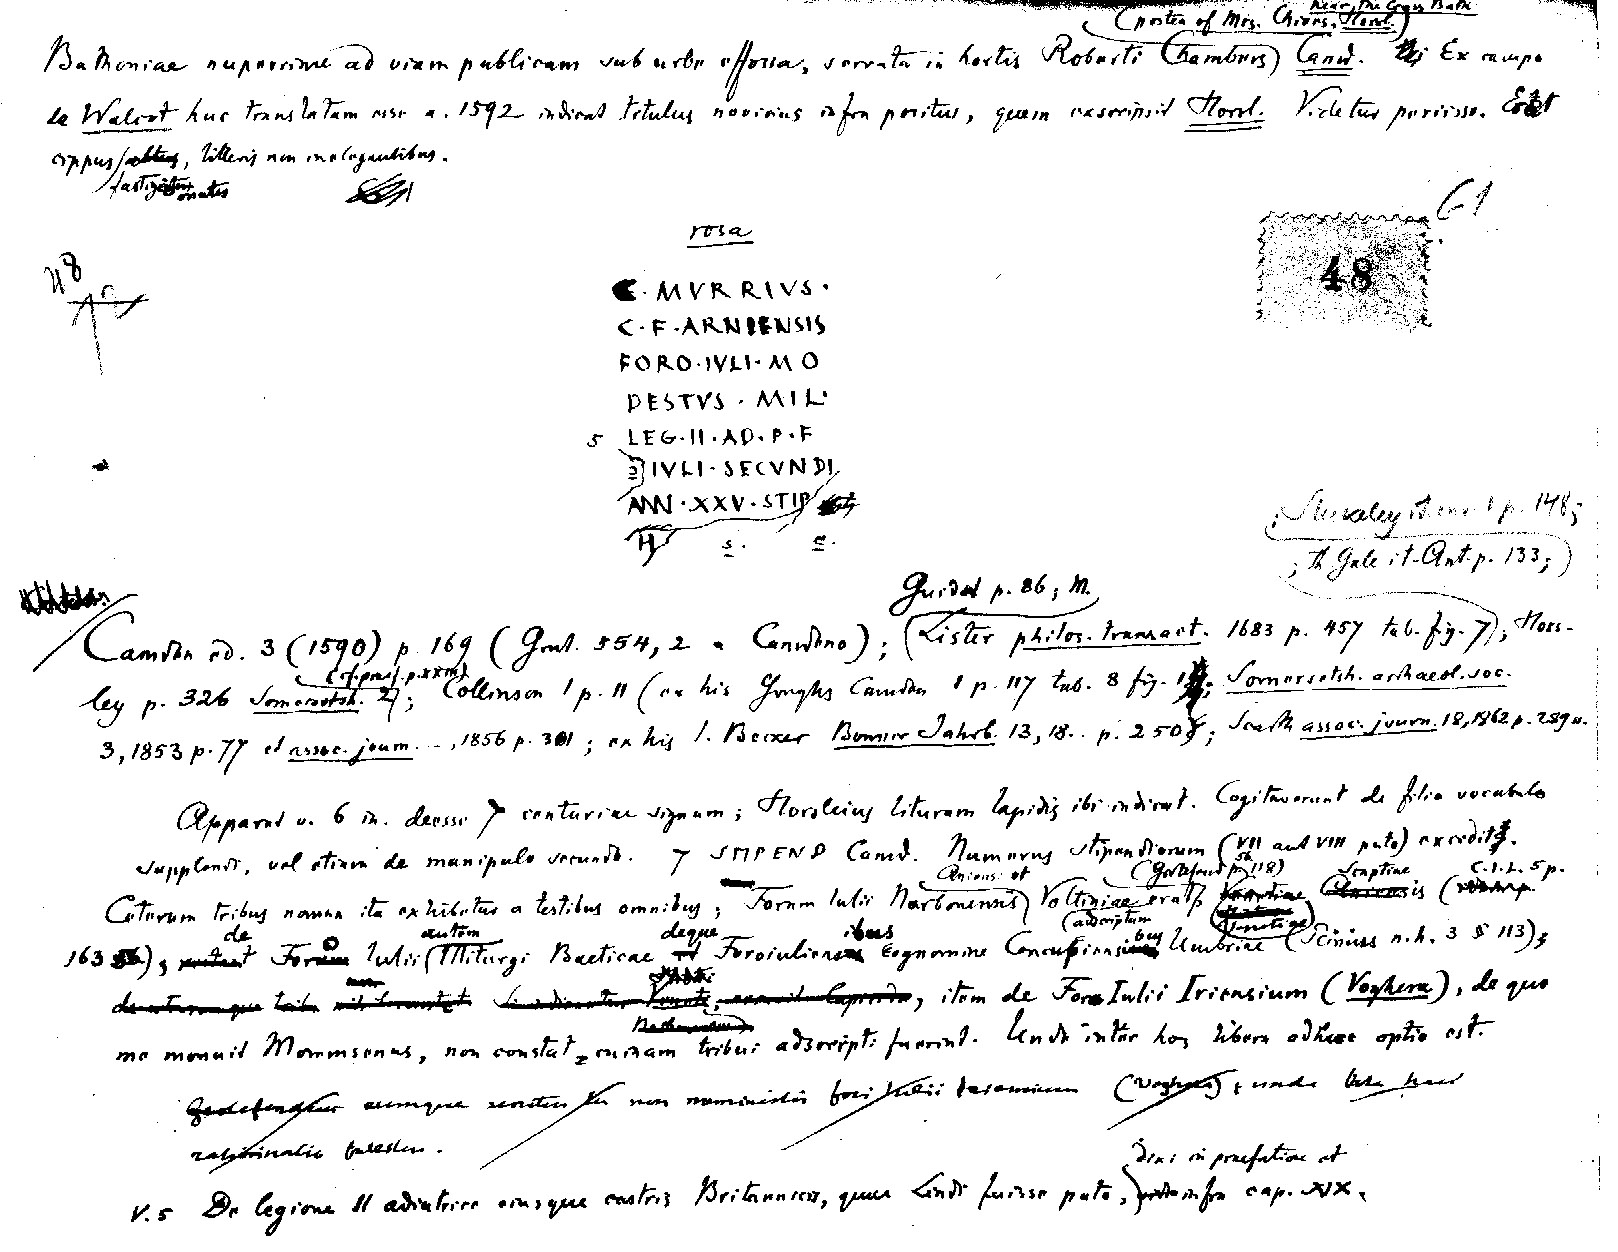 near the Cross Bath
(postea of Mrs. Chivers, Horsl.)
Bathoniae nuperrime ad viam publicam sub urbe effossa, servata in hortis Roberti Chambers Camd. Ex campo
de Walcot huc translatam esse a. 1592 indicat titulus novicius infra positus, quem exscripsit Horsl. Videtur periisse. Est
cippus, litteris non inelegantibus.
fastigatus ornatus
61
48
rosa
48
C. MVRRIVS.
C. F. ARNIENSIS
FORO. IVLI. MO
DESTVS. MIL.
5 LEG. II. AD. P. F
Ɔ IVLI. SECVNDI
ANN. XXV. STIP
H s. e.
Stukeley it. cur. 1 p. 148;
; Th Gale it. Ant. p. 133;
Guidot p. 86; M.
Camden ed. 3 (1590) p. 169 (Grut. 554, 2 a Camdeno); (Lister philos. transact. 1683 p. 457 tab. fig. 7); Hors-
(cf. praef. p. xxiii)
ley p. 326 Somersetsh. 2; Collinson 1 p. 11 (ex his Goughs Camden 1 p. 117 tab. 8 fig. 1; Somersetsh. archaeol. soc.
3, 1853 p. 77 et assoc. journ. , 1856 p. 301; ex his I. Becker Bonner Jahrb. 13, 18.. p. 250; Scarth assoc. journ. 18, 1862 p. 289 n.
Apparet v. 6 in. deesse 7 centuriae signum; Horsleius lituram lapidis ibi indicat. Cogitaverunt de filio vocabulo
supplendi, vel etiam de manipulo secundo. 7 STIPEND Camd. Numerus stipendiorum (VII aut VIII puto) excedit.
Aniensi et (Grotefend p. 118) Scaptiae C. I. L. 5 p.
Ceterum tribus nomen ita exhibetur a testibus omnibus; Forum Iulii Narbonensis Voltiniae erat
adscriptum Venetiae
de autem deque ibus bus
163); Foro Iulii (Iliturgi Baeticae Foroiuliens cognomine Concupiensi Umbriae (Plinius n. h. 3 § 113);
, item de Foro Iulii Iriensium (Voghera), de quo
me monuit Mommsenus, non constat cuinam tribui adscripti fuerint. Unde inter hos libera adhuc optio est.
cumque non Foro Iulii (Voghera); unde haec
.
dixi in praefatione et
V. 5 De legione II adiutrice eiusque castris Britannicis, quae Lindi fuisse puto, infra cap. XIX.